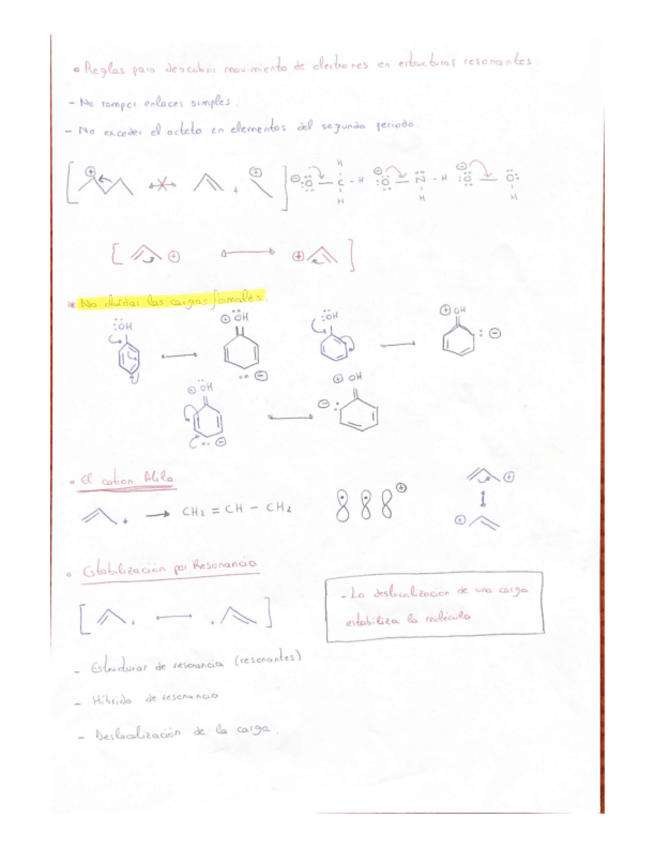 • Reglas para descubrir movimiento de electrones en estructuras resonantes:
- No romper enlaces simples.
- No exceder el octeto en elementos del segundo periodo.
* No olvidar las cargas formales.
:ÖH
⊕ ÖH
:ÖH
⊕ OH
⊕ ÖH
⊕ OH
• El catión Alilo
+ → CH2 = CH - CH2
• Estabilización por Resonancia
- La deslocalización de una carga
estabiliza la molécula
- Estructuras de resonancia (resonantes)
- Híbrido de resonancia
- Deslocalización de la carga.